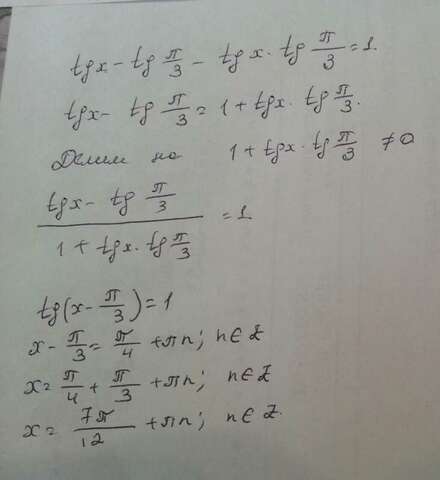 tg x - tg π/3 - tg x · tg π/3 = 1.
tg x - tg π/3 = 1 + tg x · tg π/3.
Делим на 1 + tg x · tg π/3 ≠ 0
(tg x - tg π/3) / (1 + tg x · tg π/3) = 1
tg(x - π/3) = 1
x - π/3 = π/4 + πn; n ∈ Z
x = π/4 + π/3 + πn; n ∈ Z
x = 7π/12 + πn; n ∈ Z.